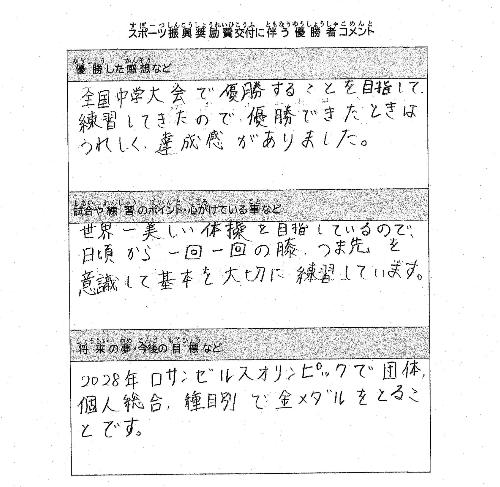 スポーツ振興奨励費交付に伴う優勝者コメント
優勝した感想など
全国中学大会で優勝することを目指して、
練習してきたので、優勝できたときは
うれしく、達成感がありました。
試合や練習のポイント・心がけている事など
世界一美しい体操を目指しているので、
日頃から一回一回の膝、つま先を
意識して基本を大切に練習しています。
将来の夢・今後の目標など
2028年ロサンゼルスオリンピックで団体、
個人総合、種目別で金メダルをとるこ
とです。